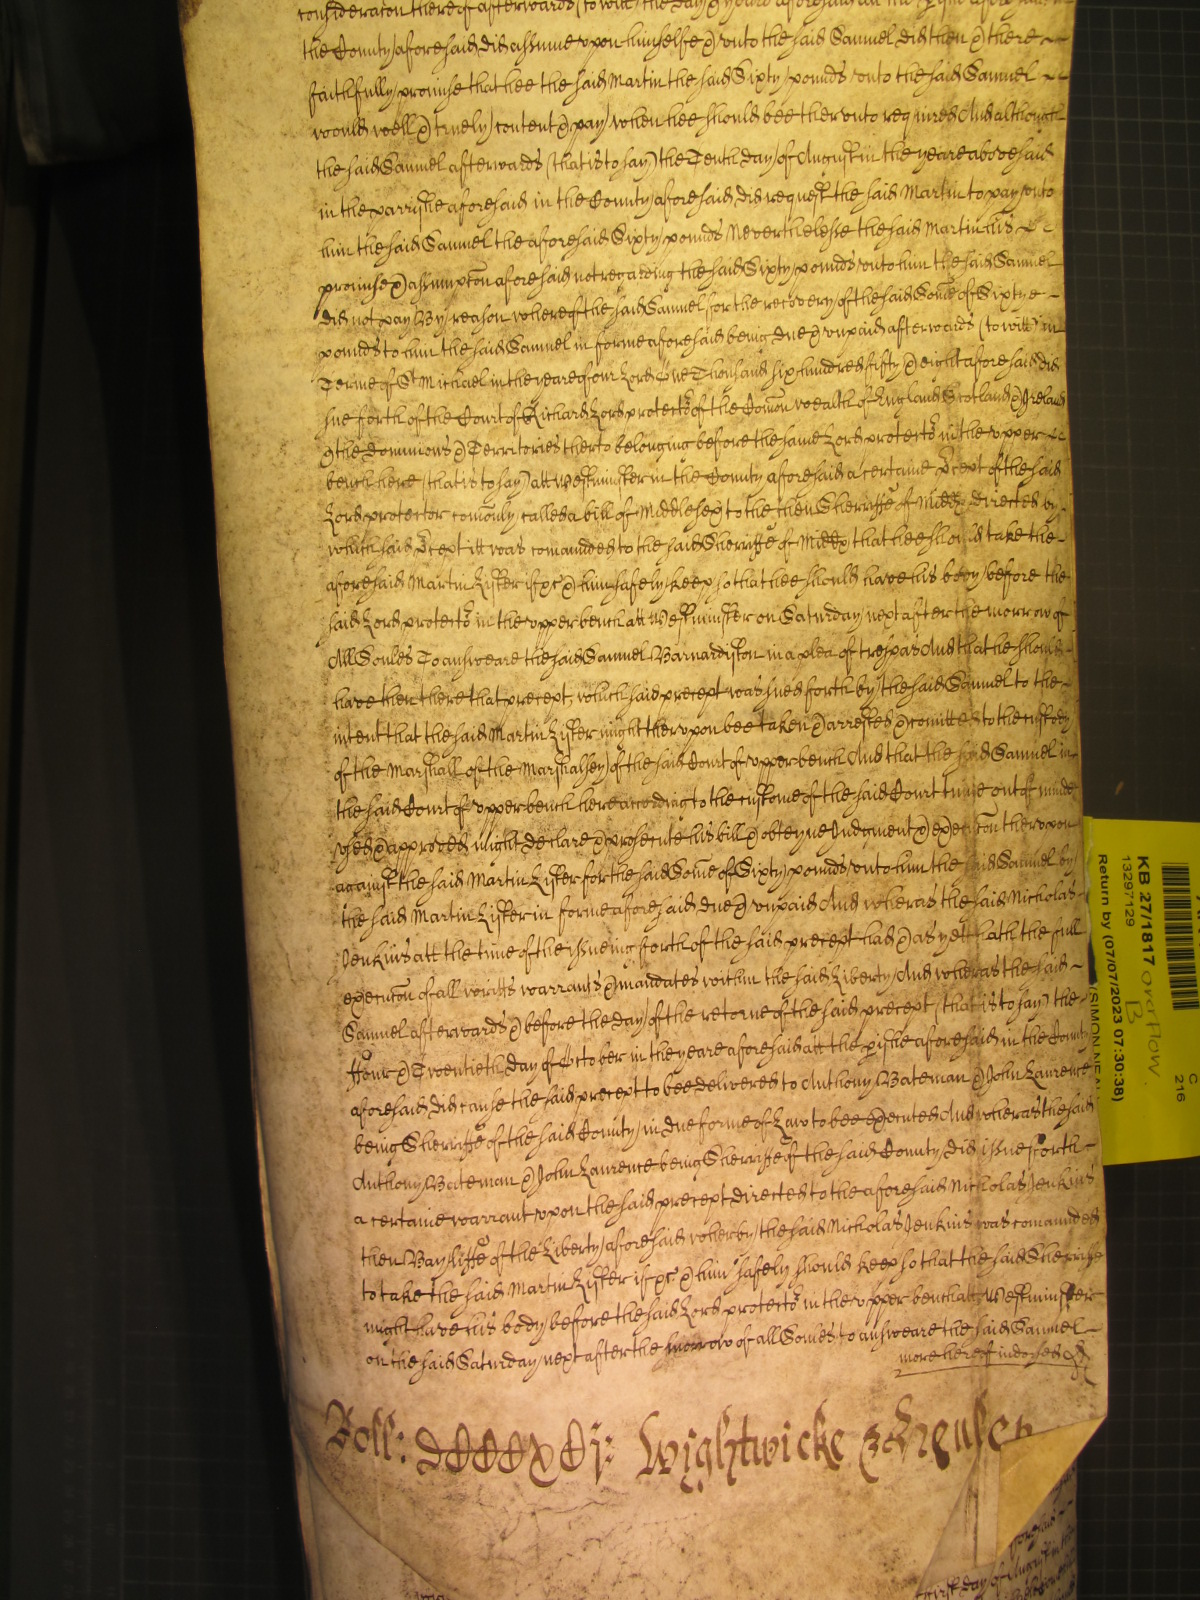 consideracon thereof afterwards (to witt) the day & yeare aforesaid att the
the County aforesaid did assume upon himselfe & unto the said Samuel did then & there
faithfully promise that hee the said Martin the said Sixty pounds unto the said Samuel
would well & truely content & pay when hee should bee therunto required And although
the said Samuel afterwards (that is to say) the Tenth day of August in the yeare abovesaid
in the parrishe aforesaid in the County aforesaid did request the said Martin to pay unto
him the said Samuel the aforesaid Sixty pounds Neverthelesse the said Martin his
promise & assumpcon aforesaid not regarding the said Sixty pounds unto him the said Samuel
did not pay By reason whereof the said Samuel for the recovery of the said Some of Sixtye
pounds to him the said Samuel in forme aforesaid being due & unpaid afterwards (to witt) in
Terme of St Michael in the yeare of our Lord One Thousand six hundred fifty & eight aforesaid did
sue forth of the Court of Richard Lord protector of the Comon wealth of England Scotland & Ireland
& the Dominions & Territories therto belonging before the same Lord protector in the upper
bench here (that is to say) att Westminster in the County aforesaid a certaine precept of the said
Lord protector comonly called a bill of Middlesex to the then Sherriffe of Middx directed by
which said precept itt was comanded to the said Sherriffe of Middx that hee should take the
aforesaid Martin Lister if &c & him safely keep so that hee should have his body before the
said Lord protector in the upper bench att Westminster on Saturday next after the morrow of
All Soules To answeare the said Samuel Barnardiston in a plea of trespas And that he should
have then there that precept, which said precept was sued forth by the said Samuel to the
intent that the said Martin Lister might therupon bee taken & arrested & comitted to the custody
of the Marshall of the Marshalsey of the said Court of upper bench And that the said Samuel in
the said Court of upper bench here according to the custome of the said Court time out of minde
used & approved might declare & prosecute his bill & obteyne Judgment & execucon therupon
against the said Martin Lister for the said Some of Sixty pounds unto him the said Samuel by
the said Martin Lister in forme aforesaid due & unpaid And wheras the said Nicholas
Jenkins att the time of the issueing forth of the said precept had & as yett hath the full
execucon of all writts warrants & mandates within the said Liberty And wheras the said
Samuel afterwards & before the day of the retorne of the said precept (that is to say) the
ffour & Twentieth day of October in the yeare aforesaid att the pishe aforesaid in the County
aforesaid did cause the said precept to bee delivered to Anthony Bateman & John Laurence
being Sherriffe of the said County in due forme of Law to bee executed And wheras the said
Anthony Bateman & John Laurence being Sherriffe of the said County did issue forth
a certaine warrant upon the said precept directed to the aforesaid Nicholas Jenkins
then Bayliffe of the Liberty aforesaid wherby the said Nicholas Jenkins was comanded
to take the said Martin Lister if &c & him safely should keep so that the said Sherriffe
might have his body before the said Lord protector in the upper bench att Westminster
on the said Saturday next after the morrow of all Soules to answeare the said Samuel
more hereof indorsed
Roll:
Wightwicke
KB 27/1817 overflow
13297129
B
Return by (07/07/2023 07:30:38)
C
216
first day of August in